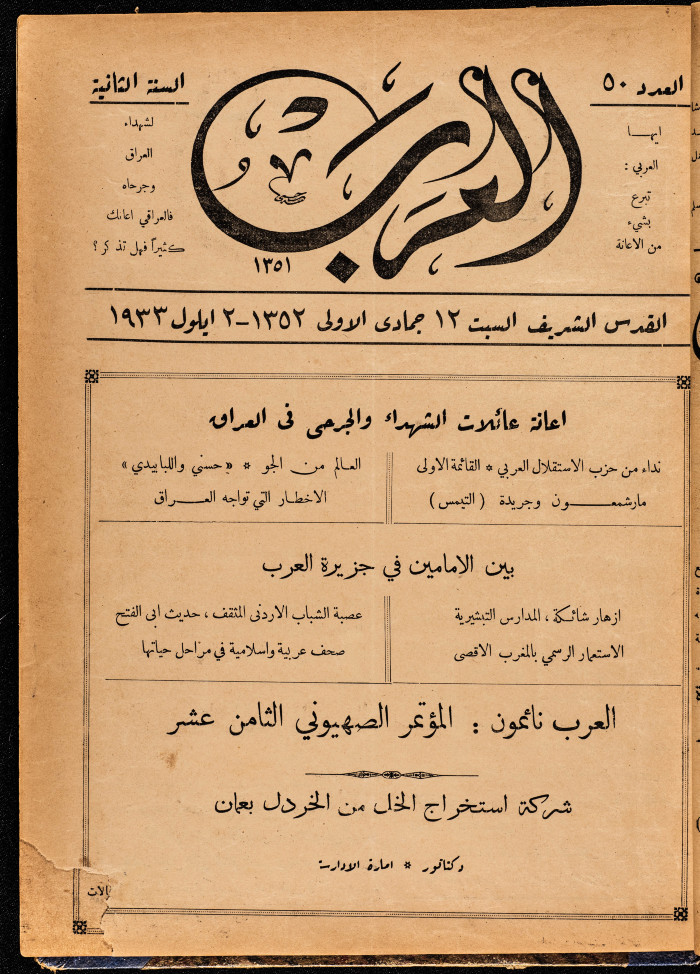 العدد ٥٠
السنة الثانية
العرب
١٣٥١
ايهـا
العربي :
تبرع
بشيء
من الاعانة
لشهداء
العراق
وجرحاه
فالعراقي اعانك
كثيراً فهل تذكر ؟
القدس الشريف السبت ١٢ جمادى الاولى ١٣٥٢ – ٢ ايلول ١٩٣٣
اعانة عائلات الشهداء والجرحى فى العراق
نداء من حزب الاستقلال العربي * القائمة الاولى
مارشمعـــون وجريدة ( التيمس )
العالم من الجو * « حسني واللبابيدي »
الاخطار التي تواجه العـــراق
بين الامامين في جزيرة العرب
ازهار شائكة ، المدارس التبشيرية
الاستعمار الرسمي بالمغرب الاقصى
عصبة الشباب الاردنى المثقف ، حديث ابى الفتح
صحف عربية واسلامية في مراحل حياتها
العرب نائمون : المؤتمر الصهيوني الثامن عشر
شركة استخراج الخل من الخردل بعمان
دكتاتور * امارة الادارسة